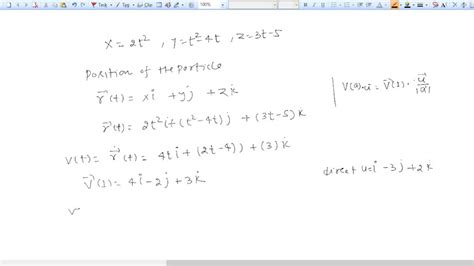 x = 2t² , y = t² - 4t , z = 3t - 5
Position of the particle
r⃗(t) = xi + yj + zk
r⃗(t) = 2t²i + (t² - 4t)j + (3t - 5)k
v(t) = ṙ⃗(t) = 4ti + (2t - 4)j + (3)k
v⃗(1) = 4i - 2j + 3k
v
= v⃗(1) · u⃗/|u⃗|
direct u = i - 3j + 2k
100%